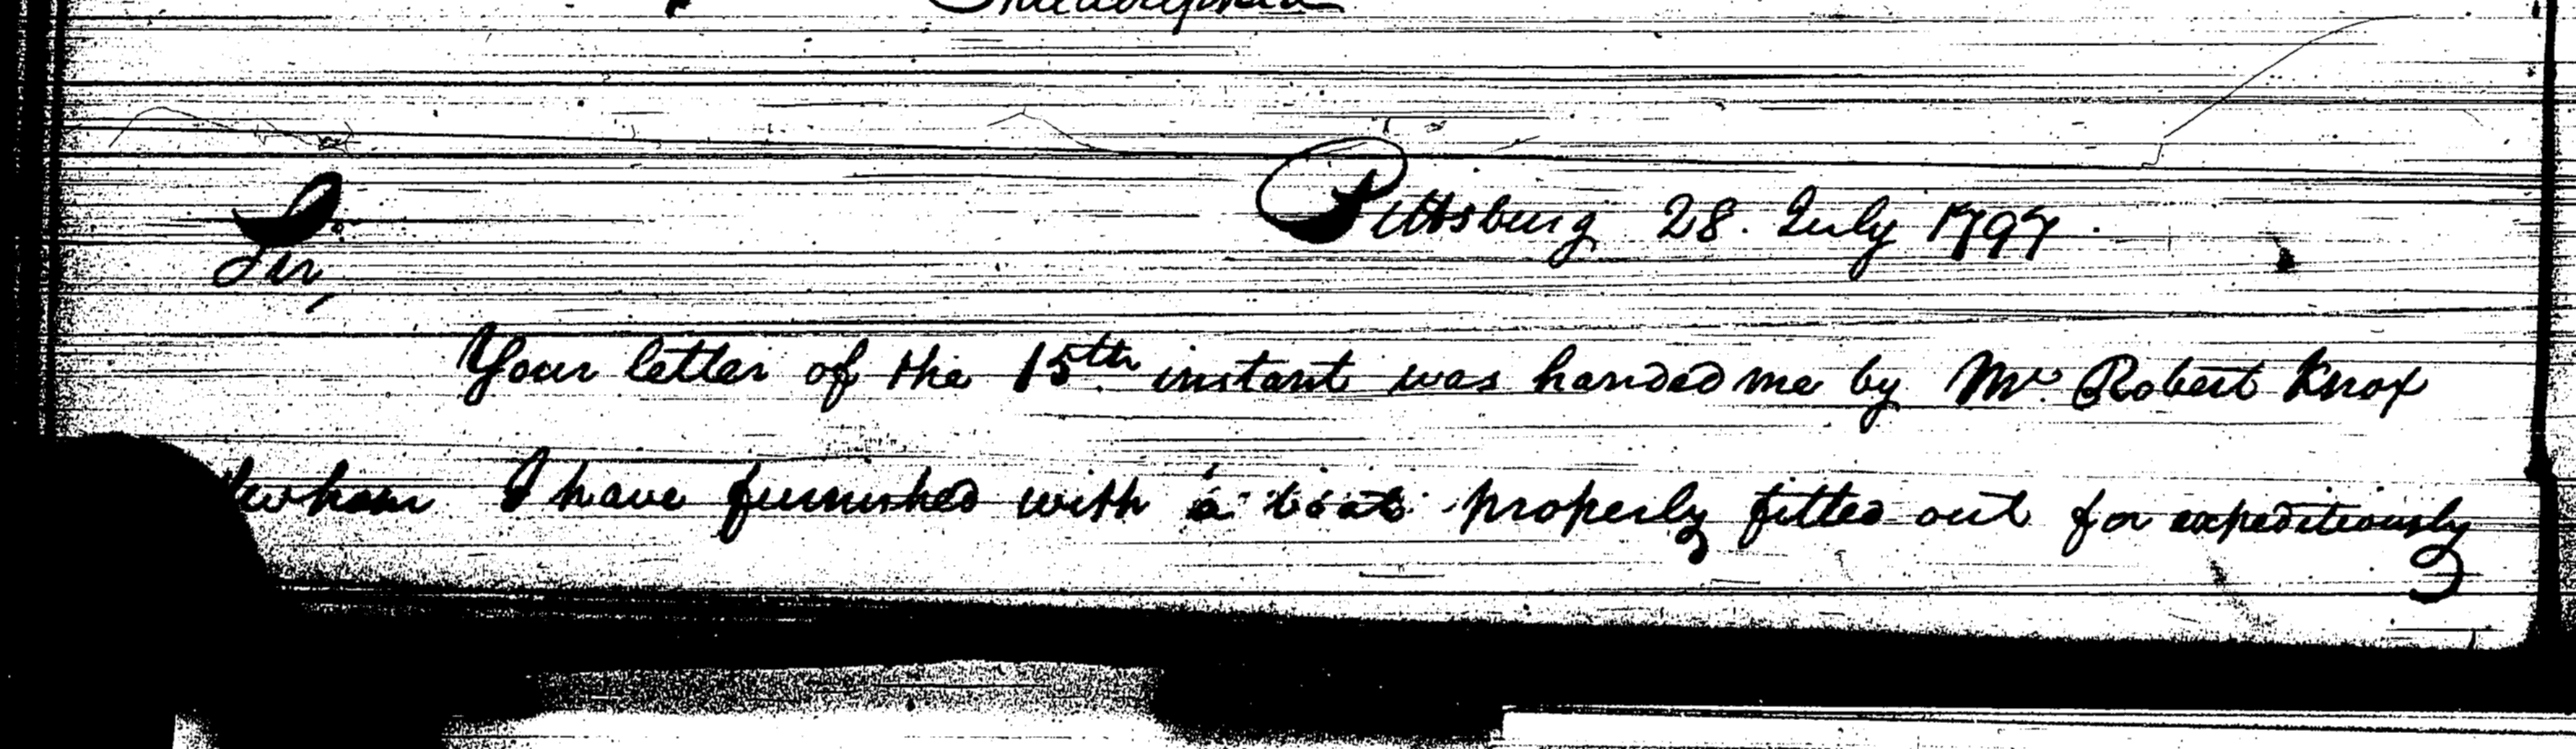 Philadelphia
Pittsburg 28. July 1797.
Sir,
Your letter of the 15th instant was handed me by Mr. Robert Knox
whom I have furnished with a boat properly fitted out for expeditiously